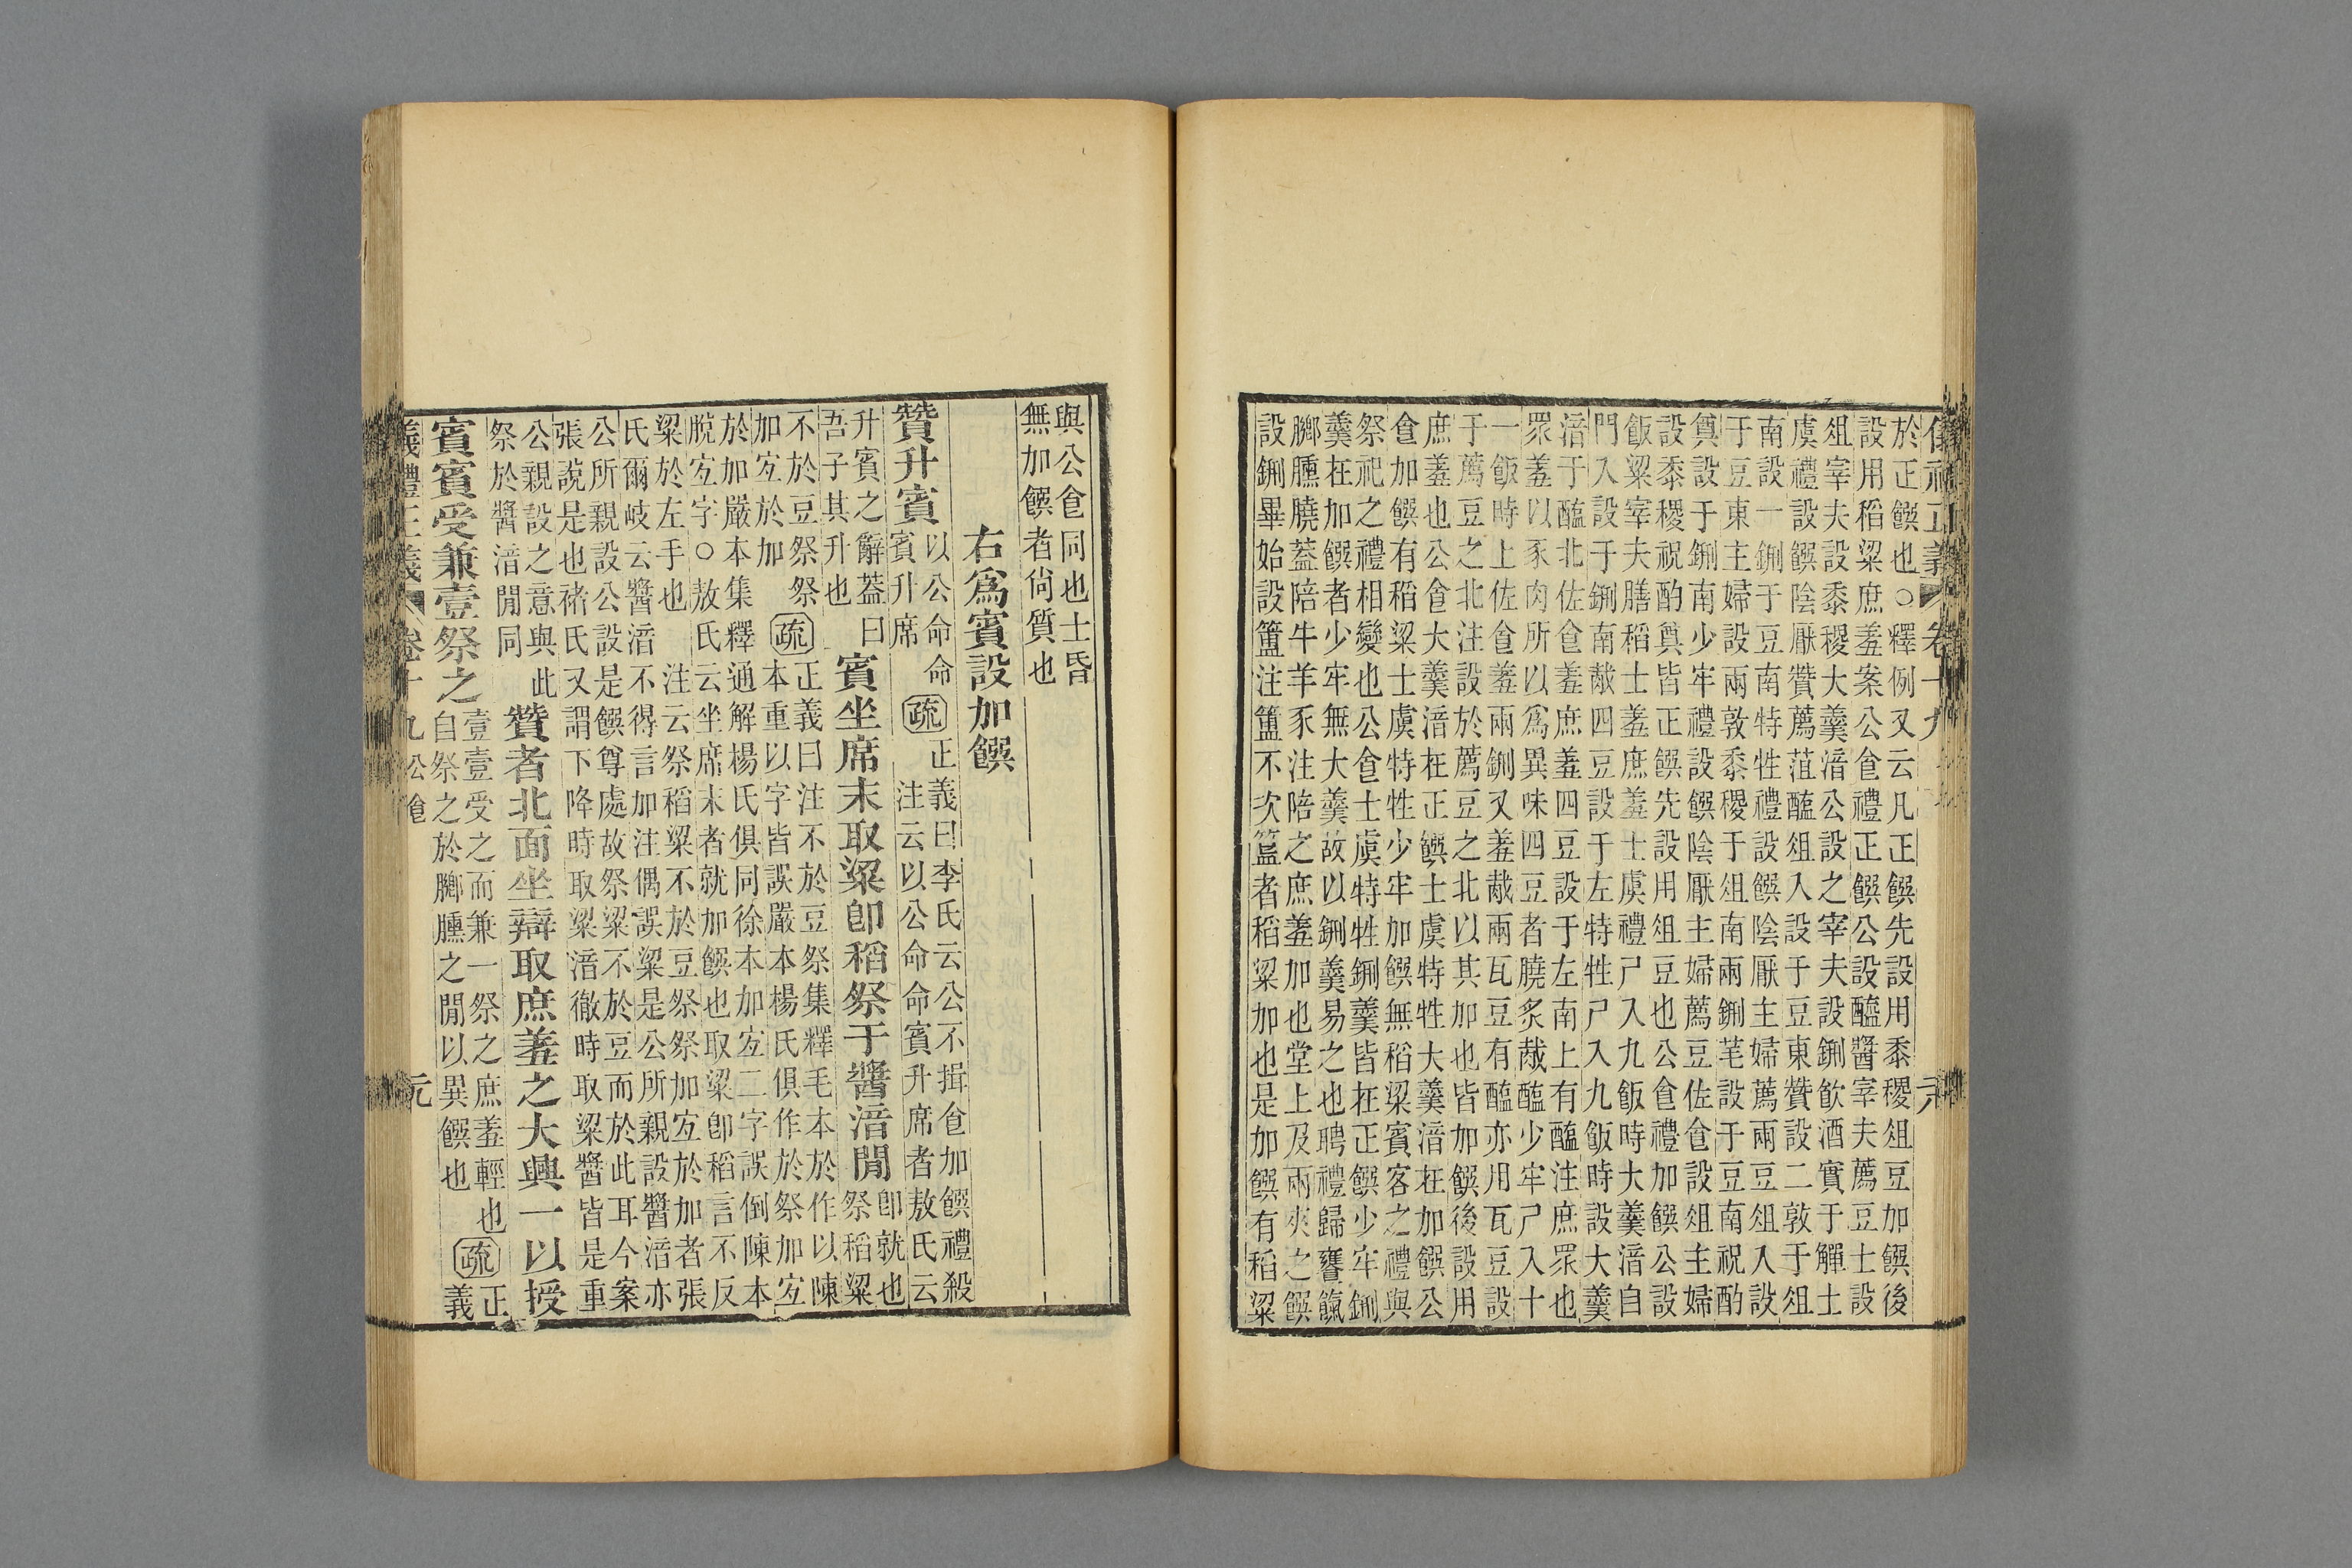 儀禮正義 卷十九
於正饌也○釋例又云凡正饌先設用黍稷俎豆加饌後
設用稻粱庶羞案公食禮正饌公設醯醬宰夫薦豆士設
俎宰夫設黍稷大羹湆公設之宰夫設鉶飲酒實于觶士
虞禮設饌陰厭贊薦菹醢俎入設于豆東贊設二敦于俎
南設一鉶于豆南特牲禮設饌陰厭主婦薦兩豆俎入設
于豆東主婦設兩敦黍稷于俎南兩鉶芼設于豆南祝酌
奠設于鉶南少牢禮設饌陰厭主婦薦豆佐食設俎主婦
設黍稷祝酌奠皆正饌先設用俎豆也公食禮加饌公設
飯粱宰夫膳稻士羞庶羞士虞禮尸入九飯時大羹湆自
門入設于鉶南胾四豆設于左特牲尸入九飯時設大羹
湆于醢北佐食羞庶羞四豆設于左南上有醢注庶眾也
眾羞以豕肉所以爲異味四豆者膮炙胾醢少牢尸入十
一飯時上佐食羞兩鉶又羞胾兩瓦豆有醢亦用瓦豆設
于薦豆之北注設於薦豆之北以其加也皆加饌後設用
庶羞也公食大羹湆在正饌士虞特牲大羹湆在加饌公
食加饌有稻粱士虞特牲少牢加饌無稻粱賓客之禮與
祭祀之禮相變也公食士虞特牲鉶羹皆在正饌少牢鉶
羹在加饌者少牢無大羹故以鉶羹易之也聘禮歸饔餼
膷臐膮蓋陪牛羊豕注陪之庶羞加也堂上及兩夾之饌
設鉶畢始設簠注簠不次簋者稻粱加也是加饌有稻粱
與公食同也士昏
無加饌者尚質也
右爲賓設加饌
贊升賓 以公命命賓升席 疏 正義曰李氏云公不揖食加饌禮殺注云以公命命賓升席者敖氏云
升賓之辭蓋曰吾子其升也 賓坐席末取粱卽稻祭于醬湆閒 卽就也祭稻粱
不於豆祭祭加宜於加 疏 正義曰注不於豆祭集釋毛本於作以陳本重以字皆誤嚴本楊氏俱作於祭加宜
於加嚴本集釋通解楊氏俱同徐本加宜二字誤倒陳本
脫宜字○敖氏云坐席末者就加饌也取粱卽稻言不反
粱於左手也 注云祭稻粱不於豆祭祭加宜於加者張
氏爾岐云醬湆不得言加注偶誤粱是公所親設醬湆亦
公所親設公設是饌尊處故祭粱不於豆而於此耳今案
張說是也褚氏又謂下降時取粱湆徹時取粱醬皆是重
公親設之意與此祭於醬湆閒同 贊者北面坐辯取庶羞之大興一以授
賓賓受兼壹祭之 壹壹受之而兼一祭之庶羞輕也自祭之於膷臐之閒以異饌也 疏 正義
儀禮正義 卷十九 公食